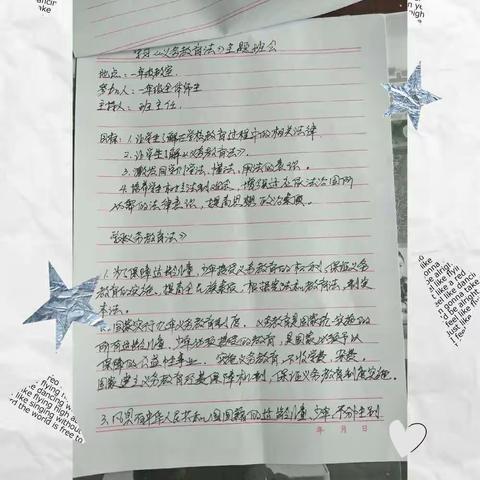 学习《义务教育法》主题班会
地点：一年级教室
参加人：一年级全体师生
主持人：班主任
目标：1.让学生了解在学校教育过程中的相关法律
2.让学生了解《义务教育法》。
3.激发同学们学法、懂法、用法的意识。
4.培养学生树立法制观念，增强适应依法治国所
必需的法律意识，提高思想政治素质。
《义务教育法》
1.为了保障适龄儿童、少年接受义务教育的权利，保证义务
教育的实施，提高全民族素质，根据宪法和教育法，制定
本法。
2.国家实行九年义务教育制度。义务教育是国家统一实施的
所有适龄儿童、少年必须接受的教育，是国家必须予以
保障的公益性事业。实施义务教育，不收学费、杂费。
国家建立义务教育经费保障机制，保证义务教育制度实施。
3.凡具有中华人民共和国国籍的适龄儿童、少年，不分性别
年 月 日